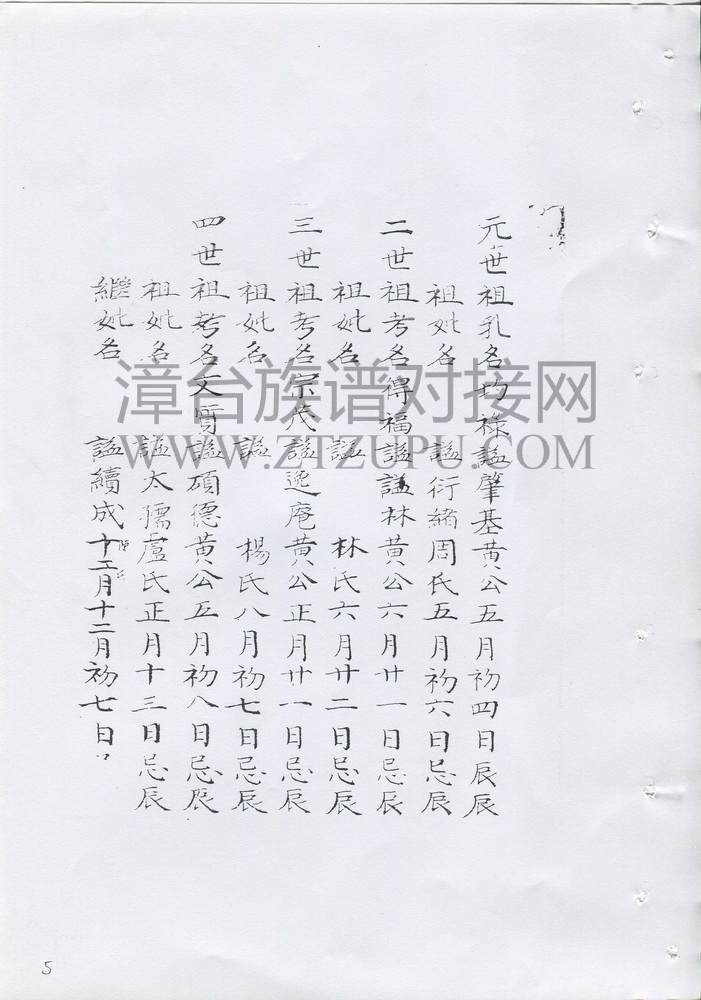 元世祖乳名均祿謚肇基黃公五月初四日辰辰
祖妣名 謚衍緒周氏五月初六日忌辰
二世祖考名得福謚謚林黃公六月廿一日忌辰
祖妣名 謚 林氏六月廿二日忌辰
三世祖考名宗茂謚逸庵黃公正月廿一日忌辰
祖妣名 謚 楊氏八月初七日忌辰
四世祖考名文質謚碩德黃公五月初八日忌辰
祖妣名 謚太孺盧氏正月十三日忌辰
繼妣名 謚續成 月十二月初七日
漳台族谱对接网
WWW.ZTZUPU.COM
5